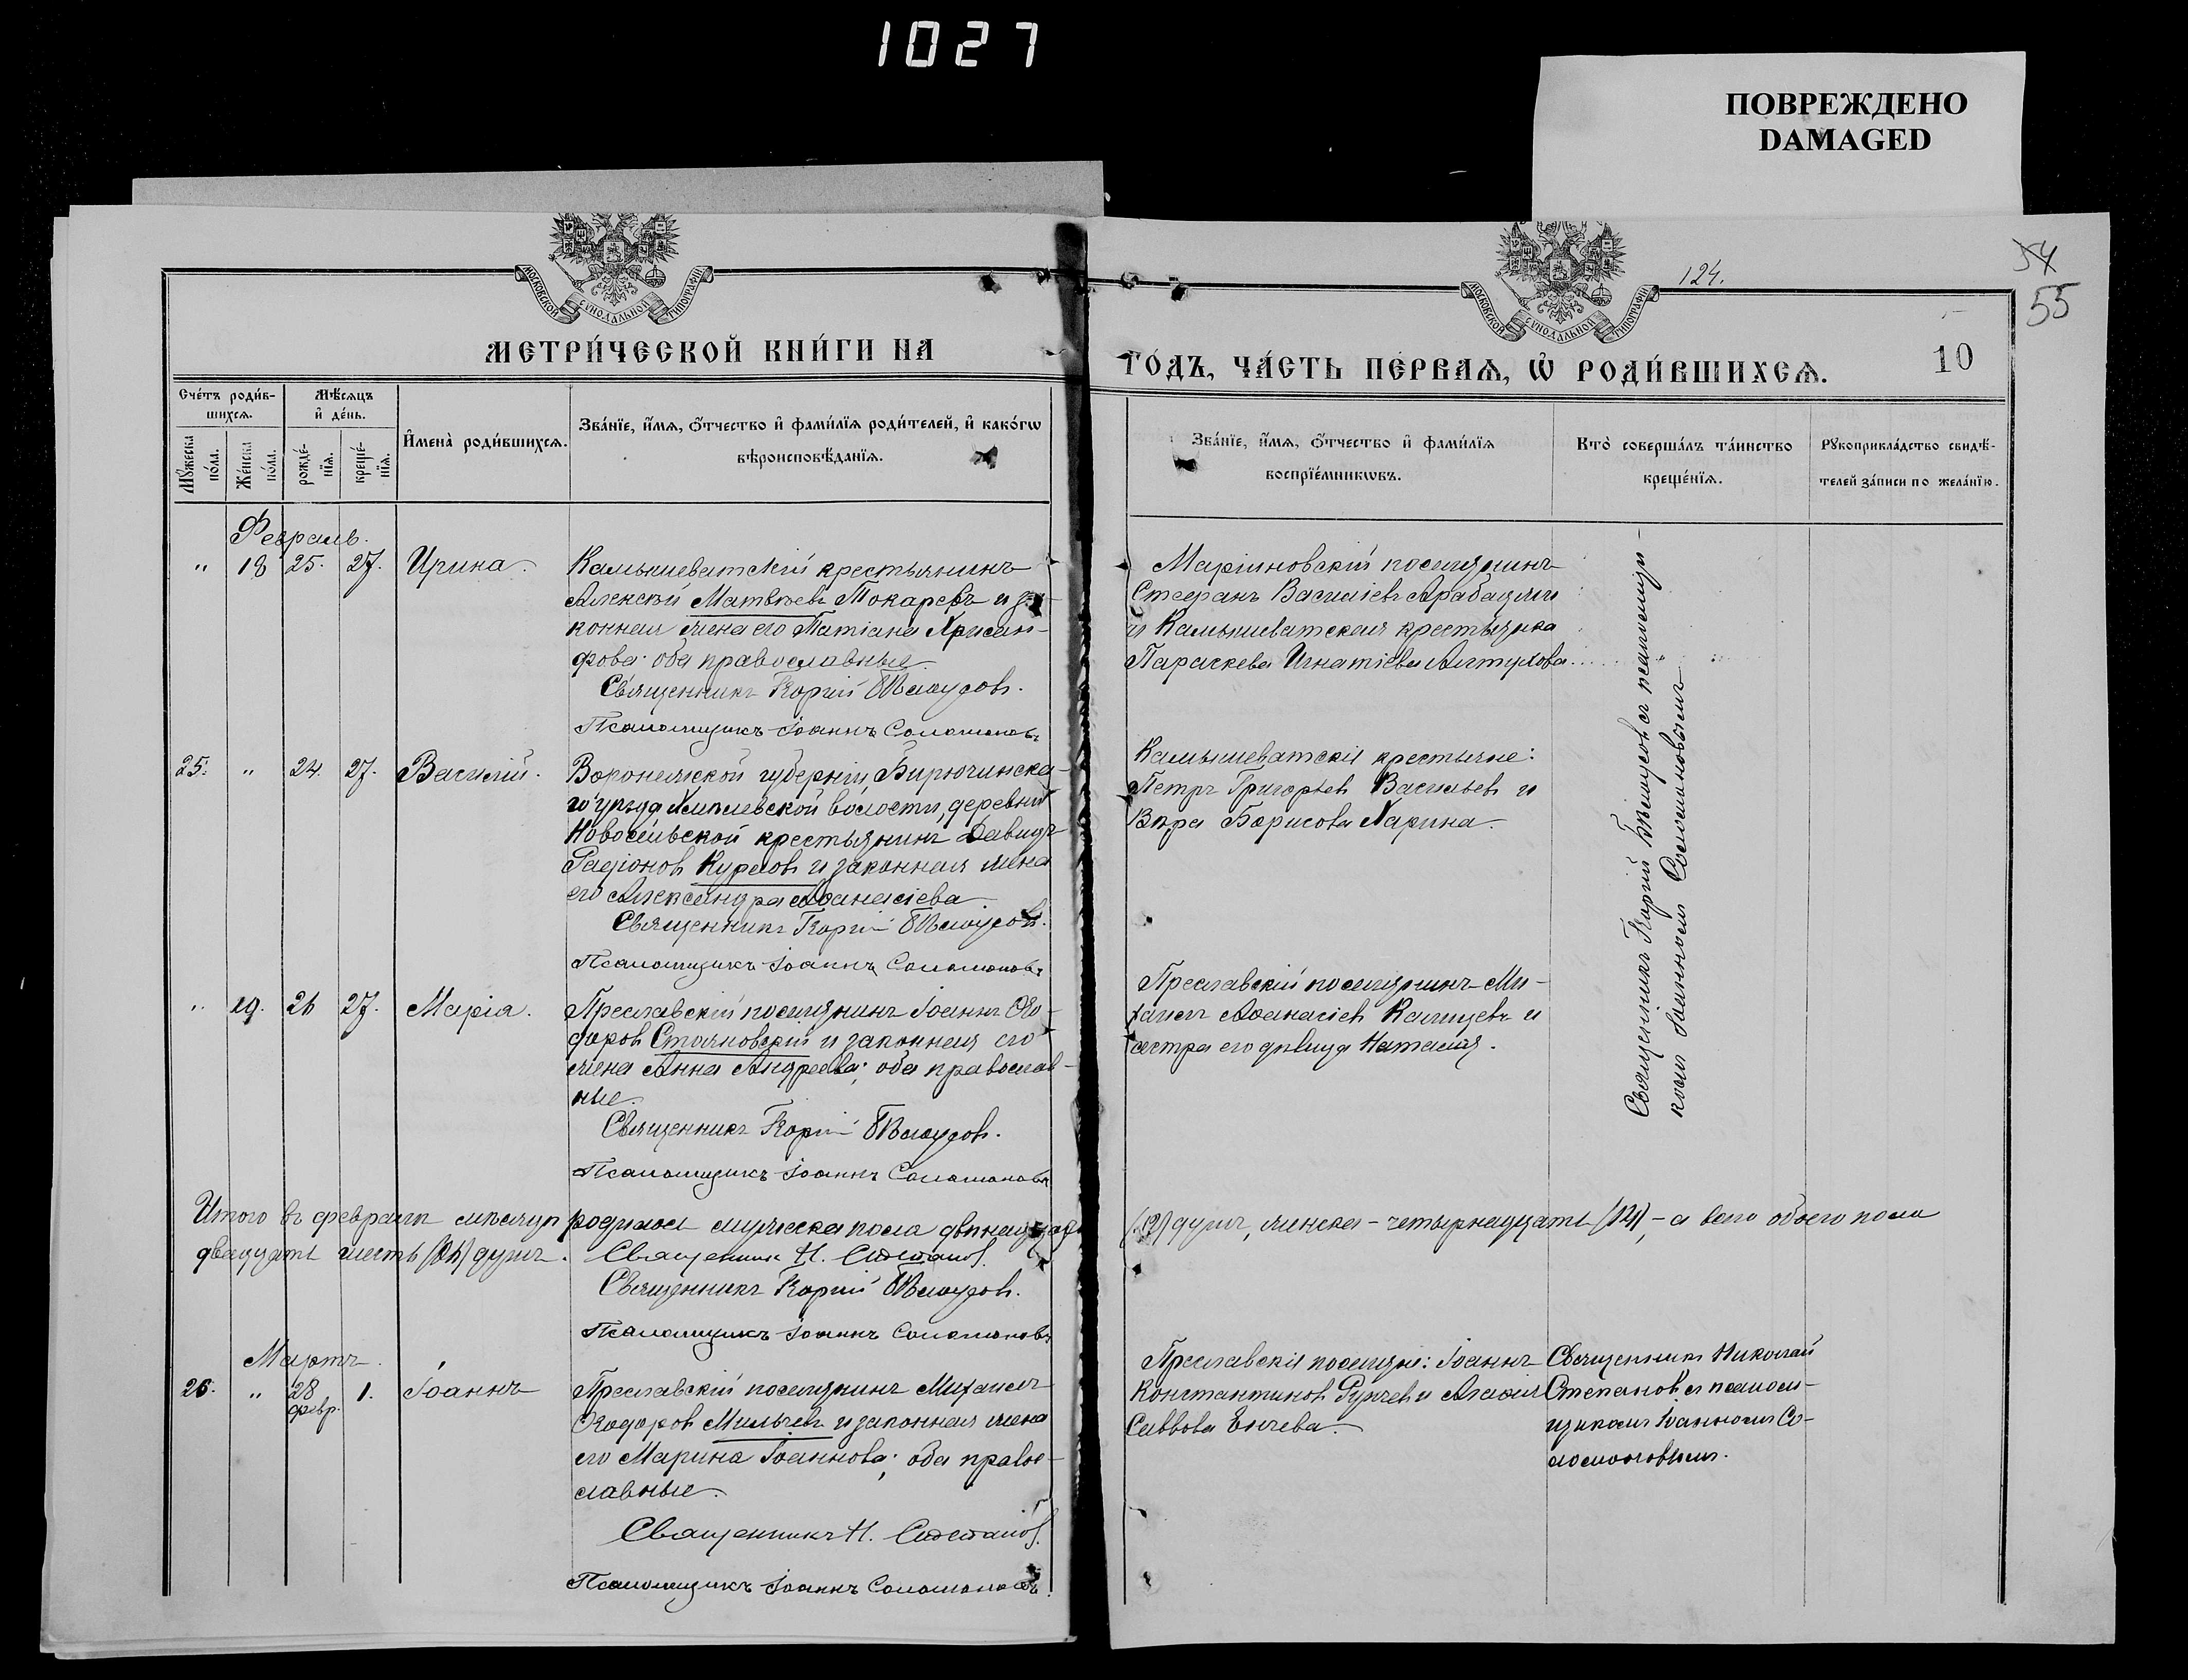 1027
ПОВРЕЖДЕНО
DAMAGED
МОСКОВСКОЙ СУНОДАЛЬНОЙ ТИПОГРАФІИ
МОСКОВСКОЙ СУНОДАЛЬНОЙ ТИПОГРАФІИ
124.
54
55
МЕТРИ́ЧЕСКОЙ КНИ́ГИ НА
ГО́ДЪ, ЧА́СТЬ ПЕ́РВАѦ, Ѡ РОДИ́ВШИХСѦ.
10
Сче́тъ роди́в-
шихсѧ.
Мѣ́сѧцъ
и҆ де́нь.
Мꙋ́жеска
по́ла.
Же́нска
по́ла.
рожде́-
нїѧ.
креще́-
нїѧ.
И҆мена̀ роди́вшихсѧ.
Зва́нїе, и҆́мѧ, ѻ҆́тчество и҆ фами́лїѧ роди́телей, и҆ како́гѡ
вѣроисповѣ́данїѧ.
Зва́нїе, и҆́мѧ, ѻ҆́тчество и҆ фами́лїѧ
воспрїе́мникѡвъ.
Кто̀ соверша́лъ та́инство
креще́нїѧ.
Рꙋкоприкла́дство свидѣ́-
телей за́писи по жела́нїю.
Февраль.
" 18 25. 27. Ирина.
Камышеватскій крестьянинъ
Алексѣй Матвѣевъ Токаревъ и за-
конная жена его Татіана Хрисан-
фова; оба православные.
Священникъ Георгій Бѣлоусовъ.
Псаломщикъ Іоаннъ Соломоновъ
Маріиновскій поселянинъ
Стефанъ Василіевъ Арабаджи
и Камышеватская крестьянка
Параскева Игнатіева Алтухова.
25. " 24. 27. Василій.
Воронежской губерніи, Бирючинска-
го уѣзда, волости, деревни
Новосельской крестьянинъ Давидъ
Радіоновъ Курсовъ и законная жена
его Александра Аѳанасіева
Священникъ Георгій Бѣлоусовъ.
Псаломщикъ Іоаннъ Соломоновъ
Камышеватскіе крестьяне:
Петръ Григорьевъ Васильевъ и
Вѣра Борисова Харина.
" 19. 26 27. Марія.
Преславскій поселянинъ Іоаннъ Ѳео-
доровъ Стояновскій и законная его
жена Анна Андреева; оба православ-
ные.
Священникъ Георгій Бѣлоусовъ.
Псаломщикъ Іоаннъ Соломоновъ
Преславскій поселянинъ Ми-
хаилъ Аѳанасіевъ Калицевъ и
сестра его дѣвица Наталія.
Священникъ Георгій Бѣлоусовъ съ псаломщи-
комъ Іоанномъ Соломоновымъ
Итого въ февралѣ мѣсяцѣ родилось мужеска пола двѣнадцать (12) душъ, женска – четырнадцать (14), – а всего обоего пола
двадцать шесть (26) душъ. Священникъ Н. Степановъ.
Священникъ Георгій Бѣлоусовъ.
Псаломщикъ Іоаннъ Соломоновъ
Мартъ.
26. " 28 1. Іоаннъ
февр.
Преславскій поселянинъ Михаилъ
Ѳеодоровъ Мильчевъ и законная жена
его Марина Іоаннова; оба право-
славные.
Священникъ Н. Степановъ.
Псаломщикъ Іоаннъ Соломоновъ.
Преславскіе поселяне: Іоаннъ
Константиновъ Рупчевъ и
Саввова Енчева.
Священникъ Николай
Степановъ съ псалом-
щикомъ Іоанномъ Со-
ломоновымъ.